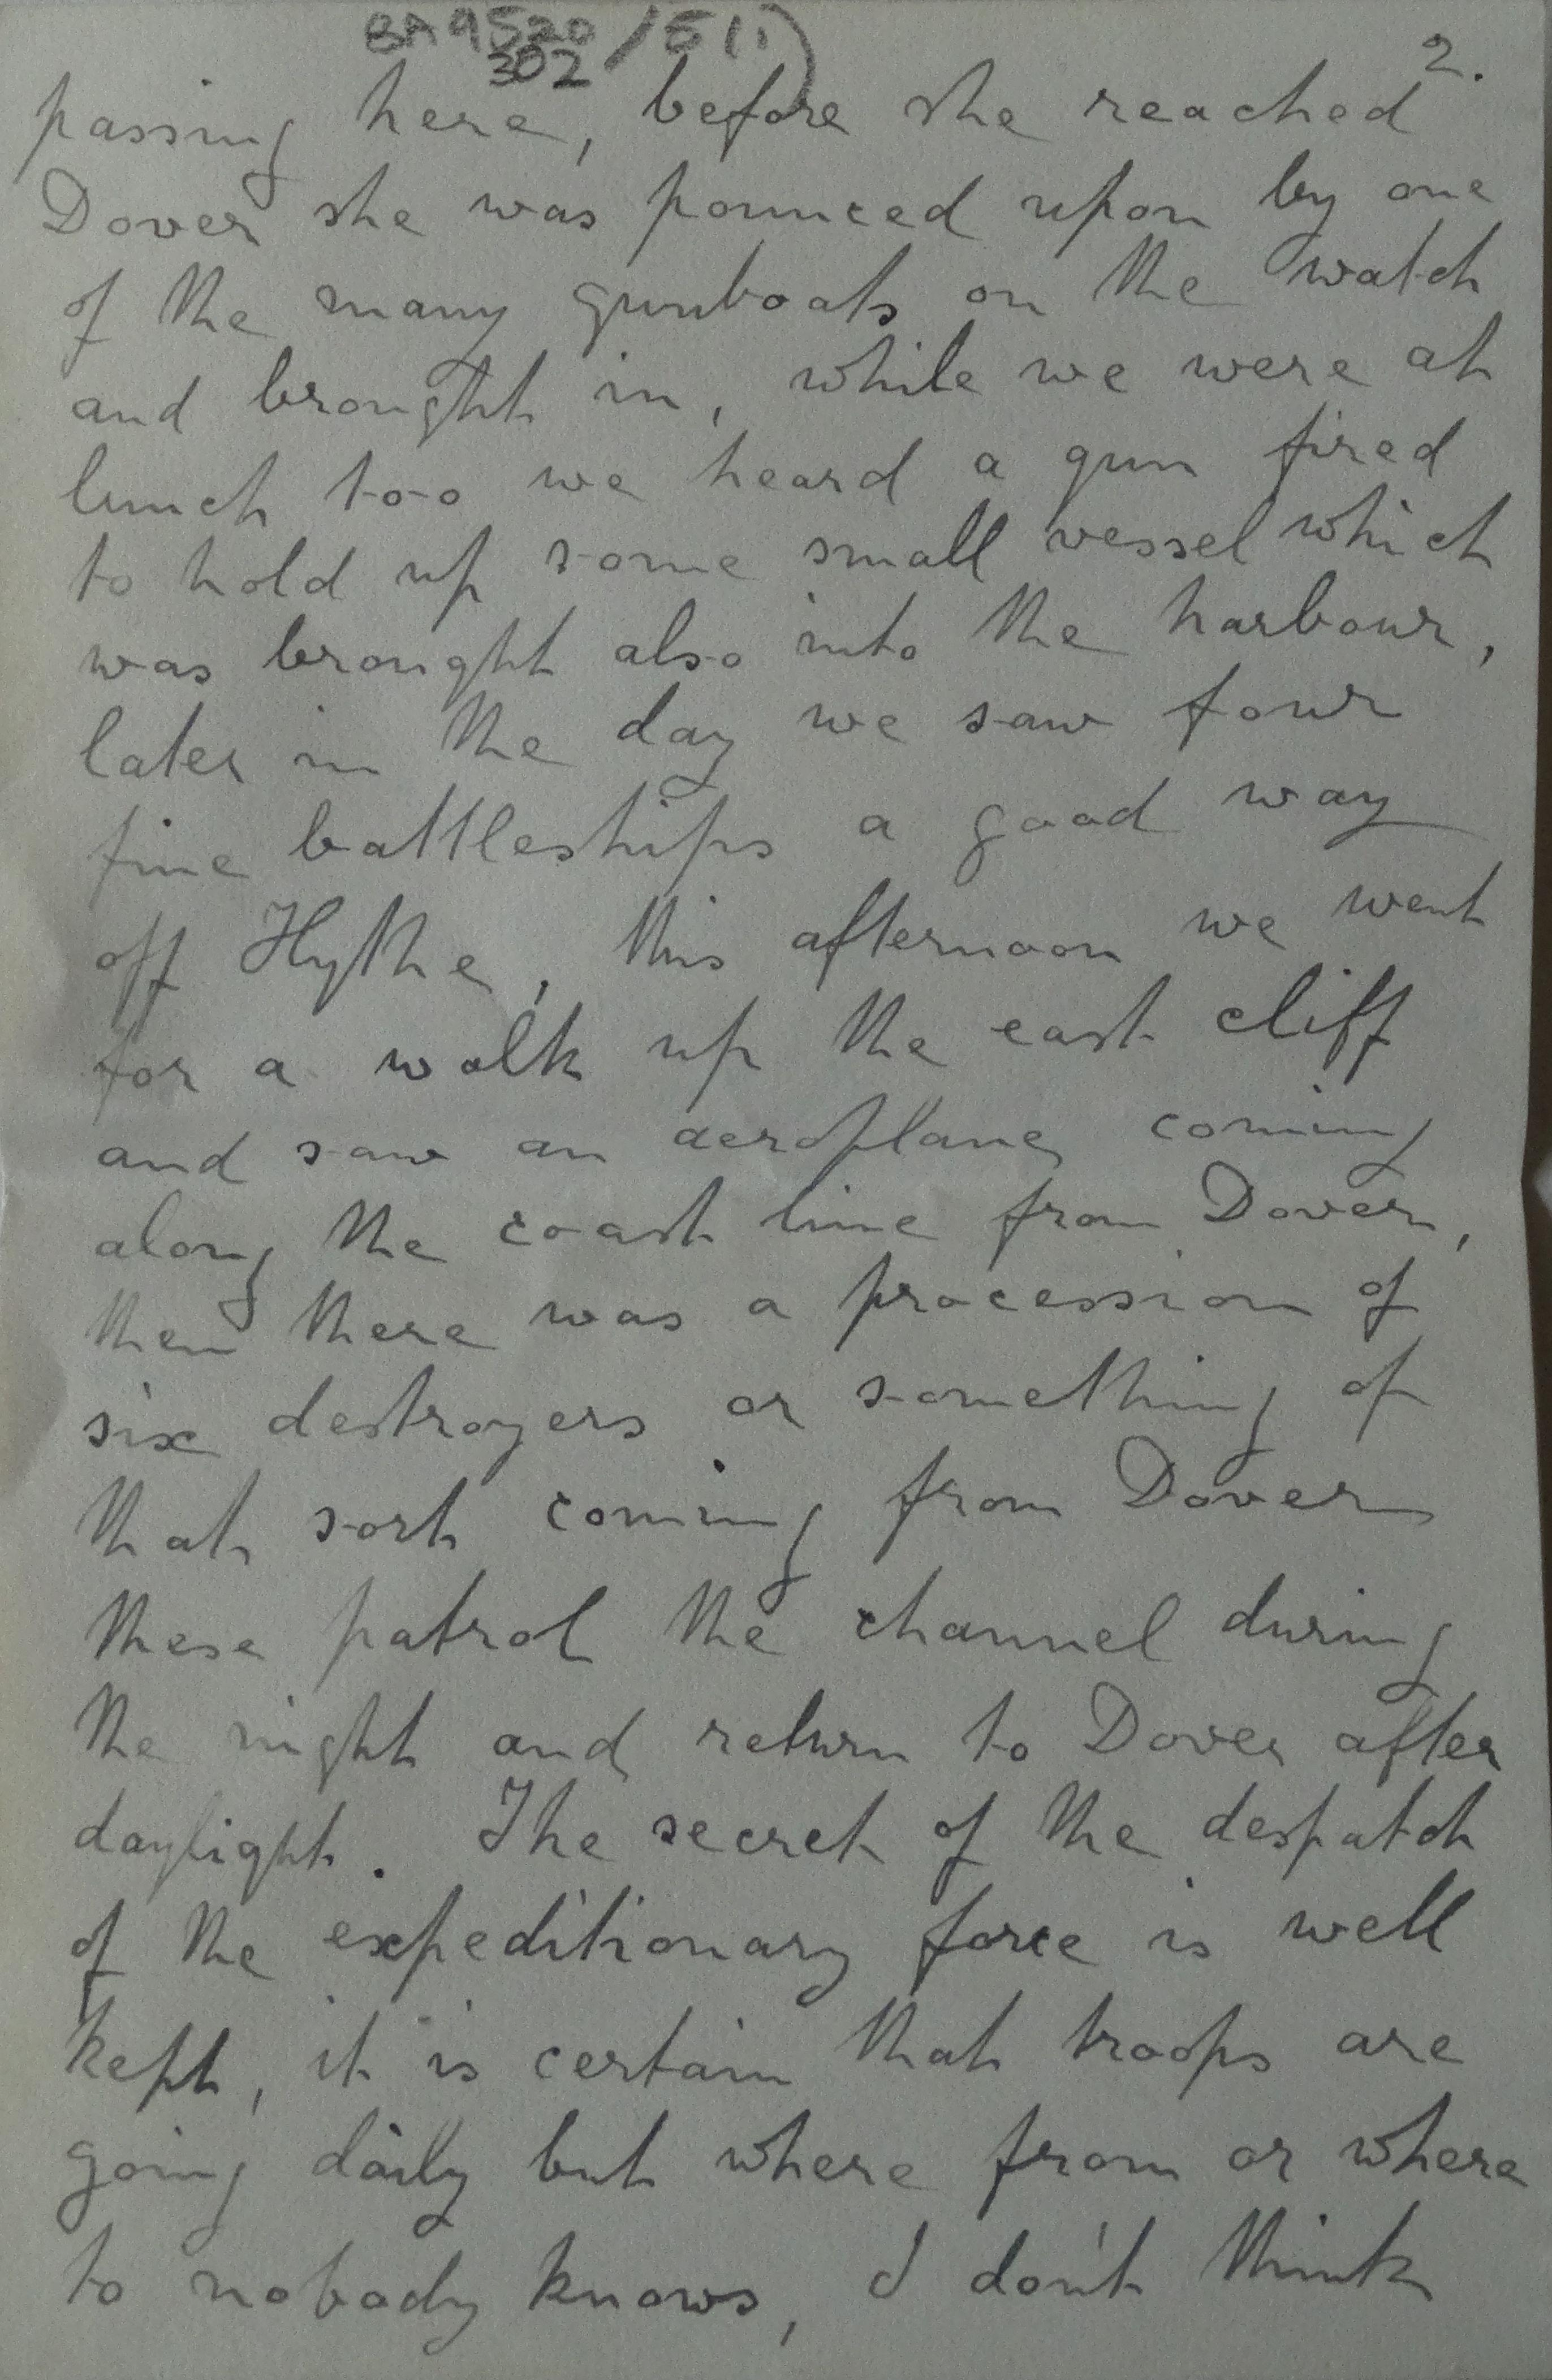 BA9520/5(i)
302
2.
passing here, before she reached
Dover she was pounced upon by one
of the many gunboats on the watch
and brought in, while we were at
lunch too we heard a gun fired
to hold up some small vessel which
was brought also into the harbour,
later in the day we saw four
fine battleships a good way
off Hythe, this afternoon we went
for a walk up the east cliff
and saw an aeroplane coming
along the coast line from Dover,
then there was a procession of
six destroyers or something of
that sort coming from Dover
these patrol the channel during
the night and return to Dover after
daylight. The secret of the despatch
of the expeditionary force is well
kept, it is certain that troops are
going daily but where from or where
to nobody knows, I don't think